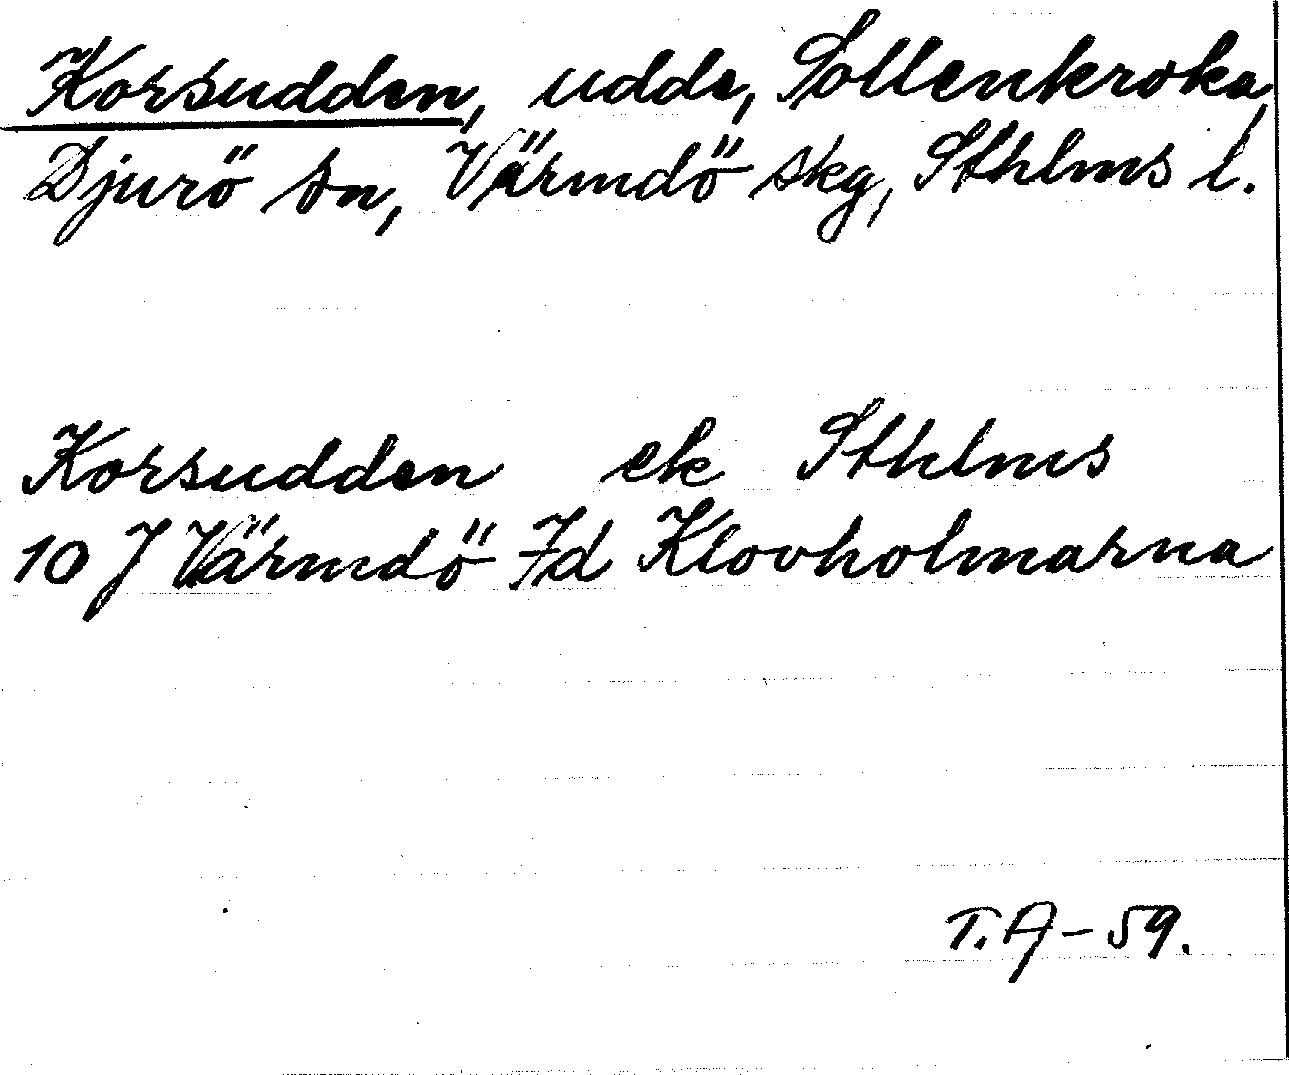 Korsudden, udde, Sollenkroka,
Djurö sn, Värmdö skg, Sthlms l.
Korsudden ek Sthlms
10 J Värmdö Fd Klovholmarna
T.A-59.